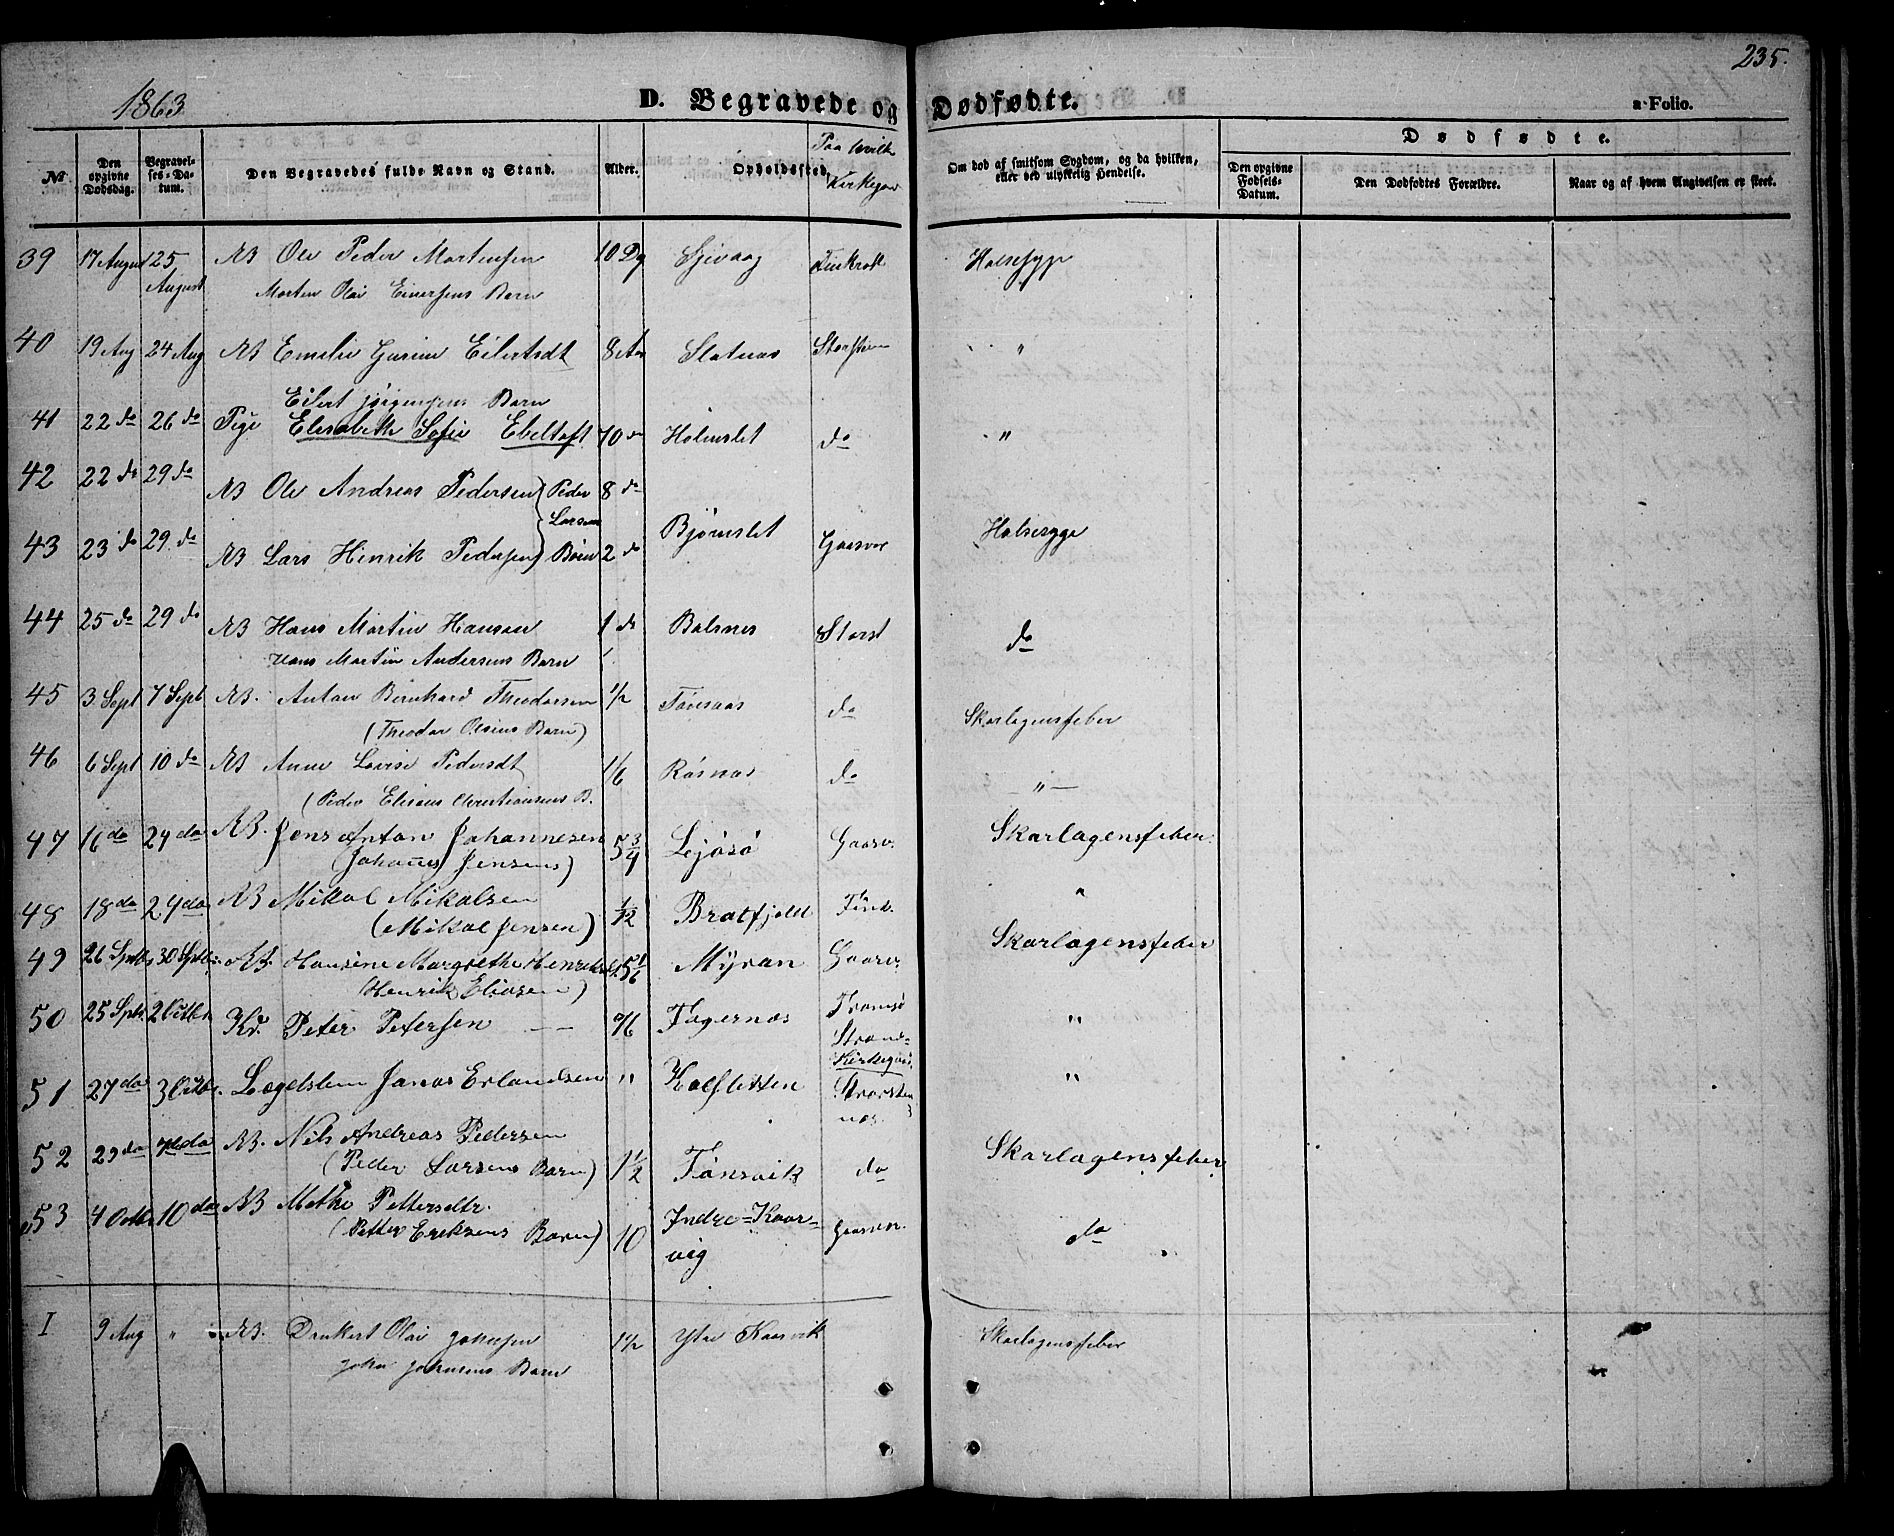 1863 D. Begravede og Dødfødte. 235.
a Folio.
Dødfødte.
No. Den opgivne Dødsdag. Begravelses-Datum. Den Begravedes fulde Navn og Stand. Alder. Opholdssted. Paa hvilk Kirkegar Om død af smitsom Sygdom, og da hvilken, eller ved ulykkelig Hendelse. Den opgivne Fødsels-Datum. Den Dødfødtes Forældre. Naar og af hvem Angivelsen er skeet.
39 17 August 25 August NB Ole Peder Mortensen 10 Dg Halsesyge
Morten Olai Einersens Barn
40 19 Aug 24 Aug NB Emelie Eilertsdt 8 Aar Slatnas "
Eilert Jørgensens Barn
41 22 do 26 do Pige Elisabeth Sofie Ebeltoft 70 do Holmslet do "
42 22 do 29 do NB Ole Andreas Pedersen Peder 8 do
Larsens Bjørnslet Halsesyge
43 23 do 29 do NB Lars Henrik Pedersen Børn 2 do Gaasvær
44 25 do 29 do NB Hans Martin Hansen 1 do Balsnes Storst do
Hans Martin Andersens Barn
45 3 Sept 7 Sept NB. Anton Bernhard Theodorsen 1/2 Tønsaas do Skarlagensfeber
(Theodor Olsens Barn)
46 6 Sept 10 do NB Anne Lovise Pedersdt 1/6 Røsnas do "
(Peder Elisæus Christiansens B.
47 16 do 24 do NB. Jens Anton Johannesen 5 3/4 Lejøsø Gaasv. Skarlagensfeber.
(Johannes Jensens)
48 18 do 24 do NB Mikal Mikalsen 1/12 Bratfjeld "
(Mikal Jensen)
49 26 Sptbr 30 Sptbr NB. Hansine Margrethe Henriksd. 5 1/6 Myran Gaasv. Skarlagensfeber
(Henrik Eliasen)
50 25 Sptbr 2 Octbr Kr. Peter Petersen Fagernas Tromsø "
Strand-
Kirkegaar.
51 27 do 3 Octbr. Lægdslem Jonas Erlandsen " Kalfletten Storsten "
nas.
52 29 do do NB. Nils Andreas Pedersen
(Peder Larsens Barn) 1 1/2 Tønsvik do Skarlagensfeber
53 4 Octbr 10 do NB Methe Pettersdtr.
(Petter Eriksens Barn) 10 Indre-Kaar-
vig Gaasvær. do
I 9 Aug " NB. Drukert Olai Johnsen 1 1/2 Ytre Kaarvik Skarlagensfeber
John Johnsens Barn